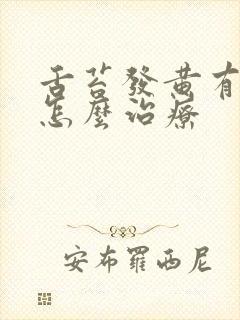 舌苔發黃有
怎麼治療
安布羅西尼